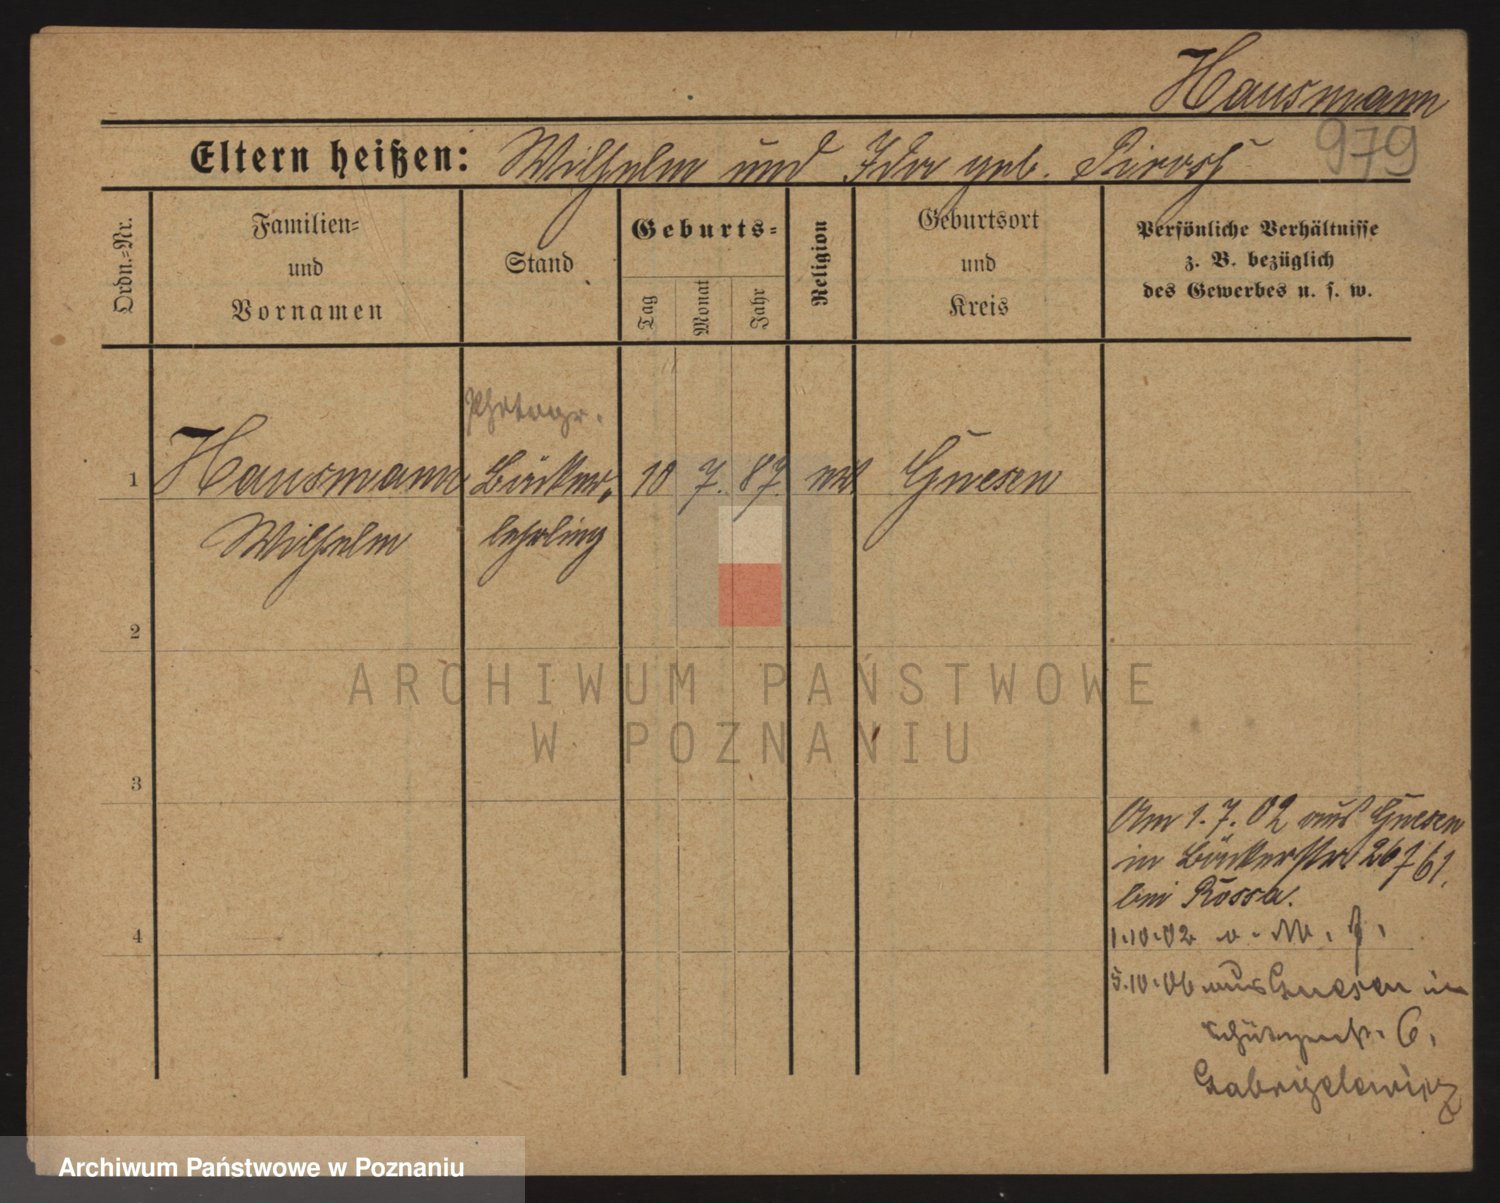 Hausmann
979
Eltern heißen: Wilhelm und Ida geb.
Ordn.-Nr.
Familien-
und
Vornamen
Stand
Geburts-
Tag
Monat
Jahr
Religion
Geburtsort
und
Kreis
Persönliche Verhältnisse
z. B. bezüglich
des Gewerbes u. s. w.
Photogr.
1 Hausmann Bäcker- 10 7. 87. Gnesen
Wilhelm lehrling
2
3
Am 1.7.02 aus Gnesen
in Bäckerstr. 26
bei Rossa.
4
1.10.02
5.10.06 aus Gnesen in
Schützenstr. 6.
Gabrizelewicz
ARCHIWUM PAŃSTWOWE
W POZNANIU
Archiwum Państwowe w Poznaniu